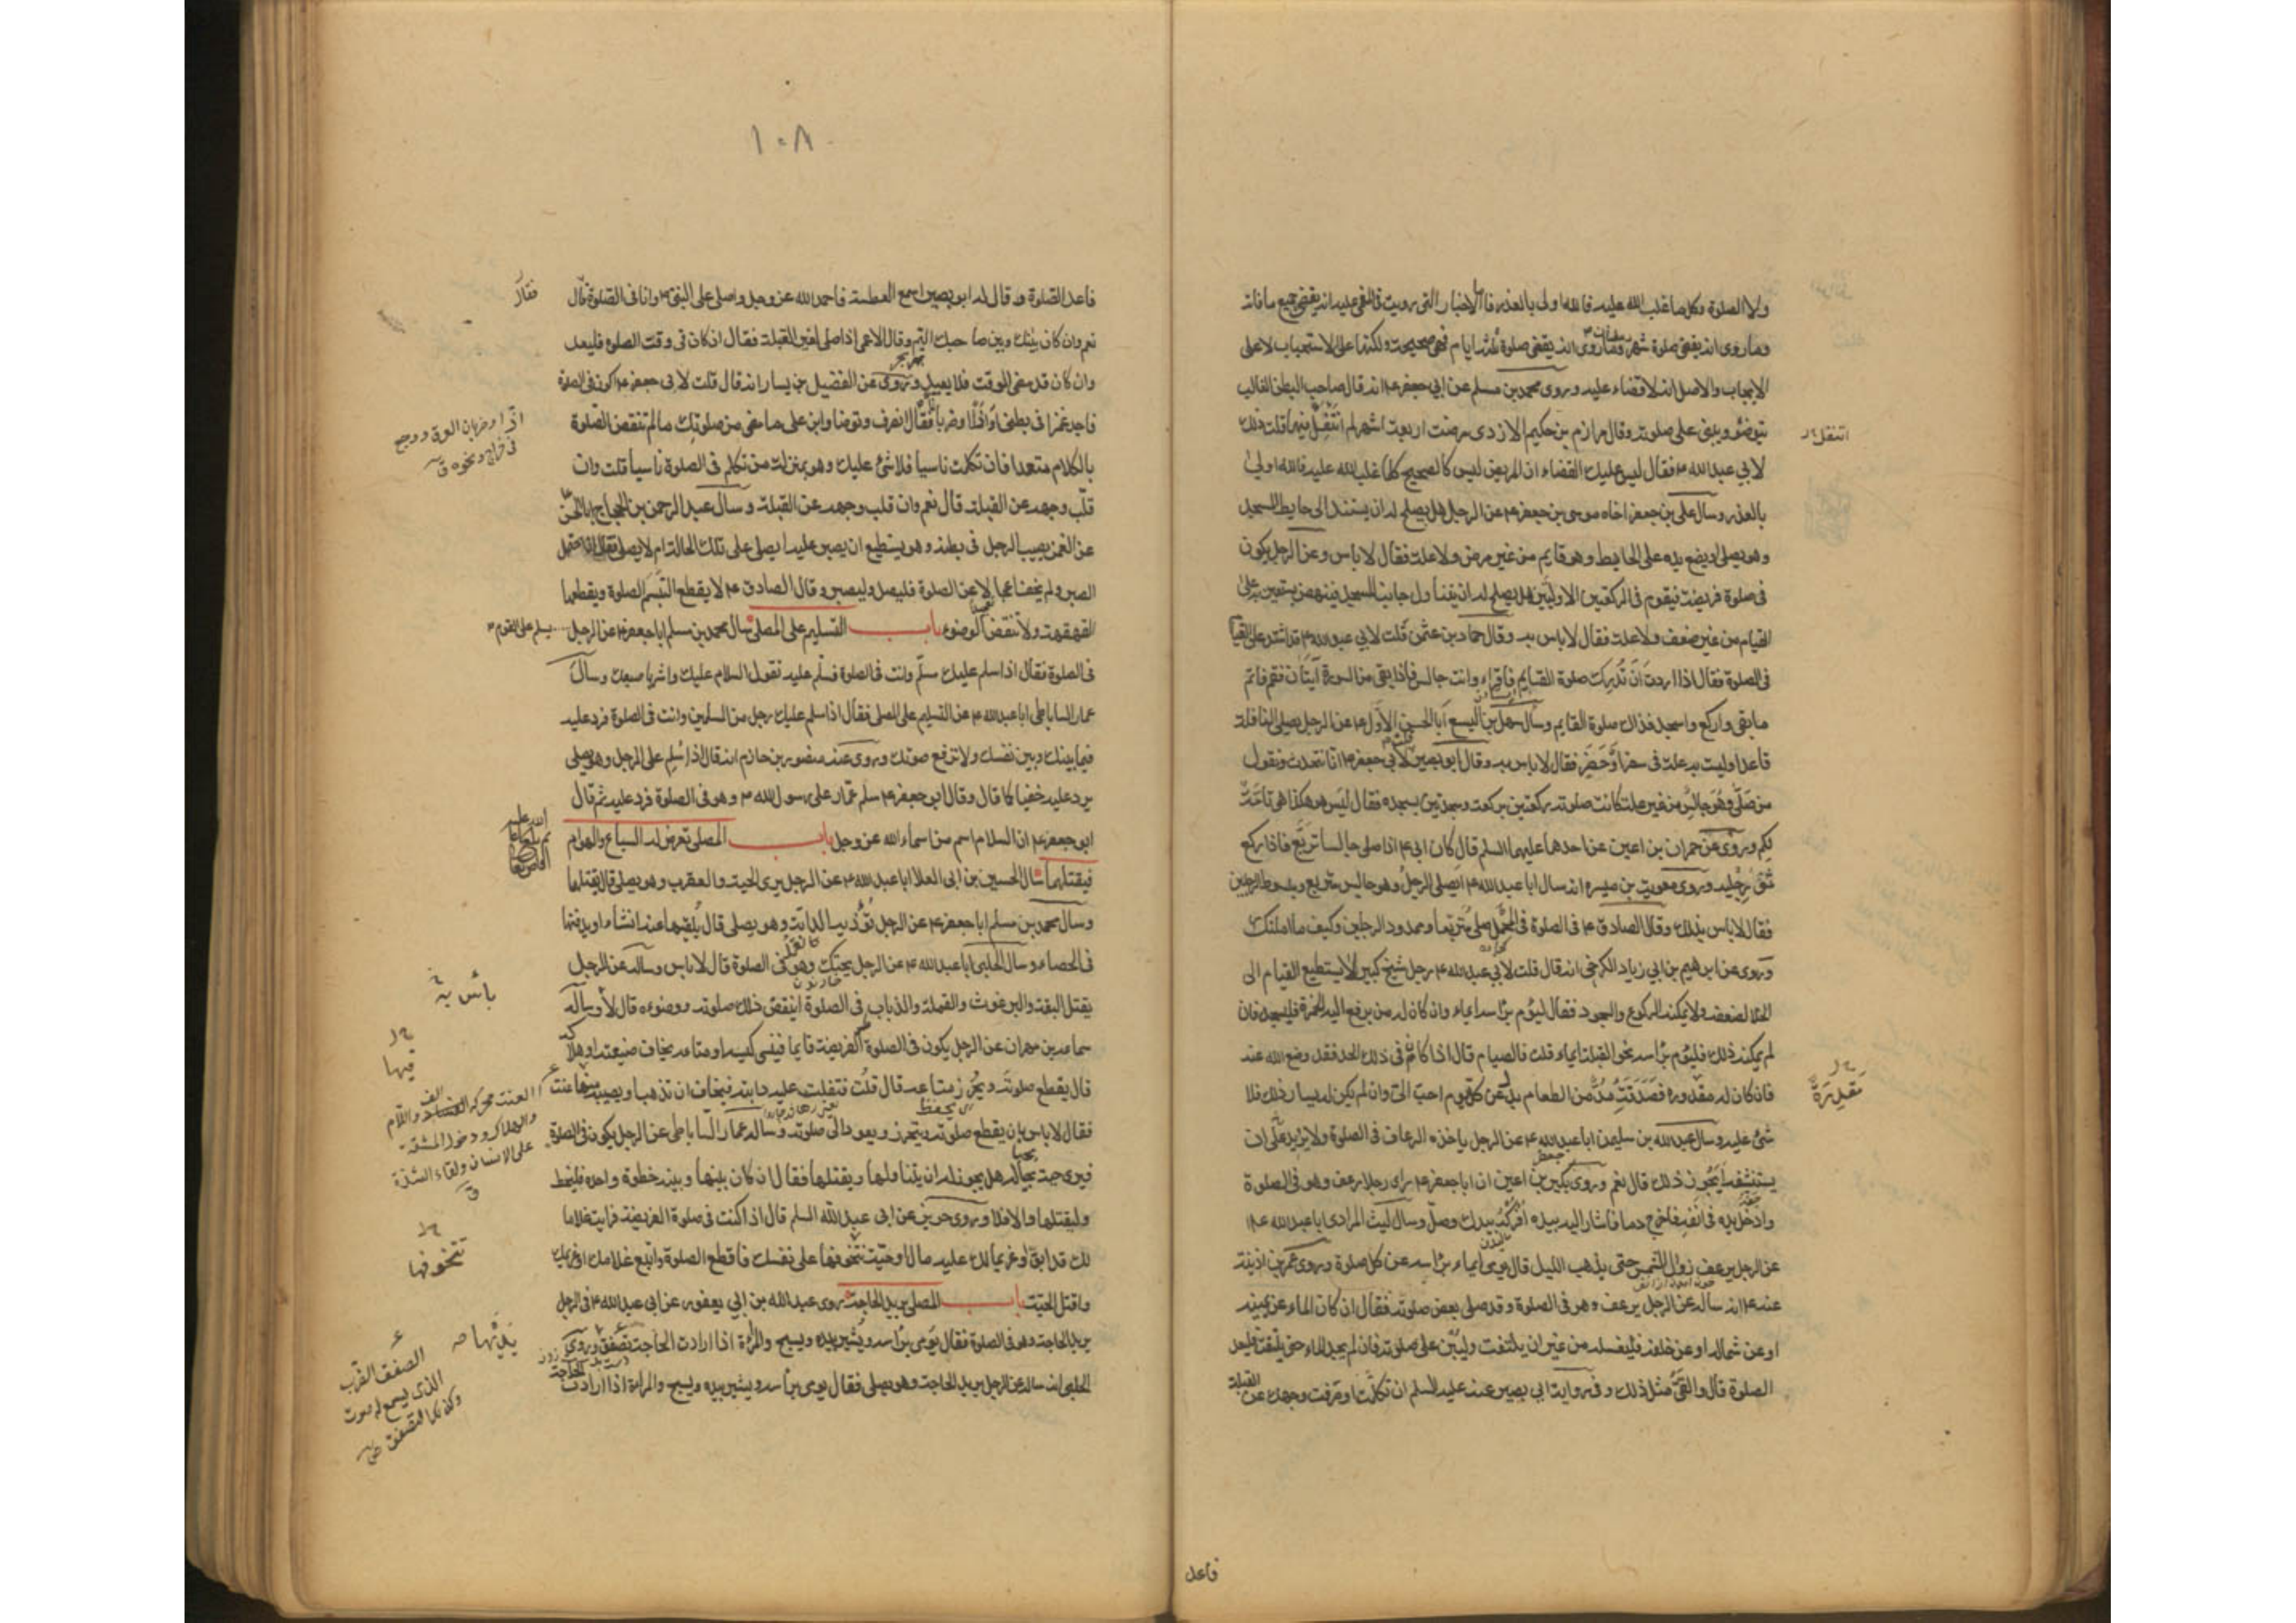 ولا الصلوة وكل ما غلب الله عليه فالله اولى بالعذر فاما الاخبار التى رويت فى المغمى عليه انه يقضى جميع ما فاته
وما روى انه يقضى صلوة شهر وما روى انه يقضى صلوة ثلثة ايام فهى صحيحة ولكنها على الاستحباب لا على
الايجاب والاصل انه لا قضاء عليه وروى محمد بن مسلم عن ابى جعفر ع انه قال صاحب البطن الغالب
يتوضؤ ويبنى على صلوته وقال مرازم بن حكيم الازدى مرضت اربعة اشهر لم اتنفل فيها قلت ذلك
لابى عبد الله ع فقال ليس عليك القضاء ان المريض ليس كالصحيح كلما غلب الله عليه فالله اولى
بالعذر وسال على بن جعفر اخاه موسى بن جعفر ع عن الرجل هل يصلح له ان يستند الى حايط المسجد
وهو يصلى او يضع يده على الحايط وهو قايم من غير مرض ولا علة فقال لا باس وعن الرجل يكون
فى صلوة فريضة فيقوم فى الركعتين الاوليين هل يصلح له ان يتناول جانب المسجد فينهض يستعين به على
القيام من غير ضعف ولا علة فقال لا باس به وقال حماد بن عثمن قلت لابى عبد الله ع قد اشتد على القيام
فى الصلوة فقال اذا اردت ان تدرك صلوة القايم فاقراء وانت جالس فاذا بقى من السورة آيتان فقم فاتم
ما بقى واركع واسجد فذاك صلوة القايم وسال سهل بن اليسع ابا الحسن الاول ع عن الرجل يصلى النافلة
قاعدا وليست به علة فى سفر او حضر فقال لا باس به وقال ابو بصير لابى جعفر ع انا نتحدث ونقول
من صلى وهو جالس من غير علة كانت صلوته ركعتين بركعة وسجدتين بسجدة فقال ليس هو هكذا هى تامة
لكم وروى عن حمران بن اعين عن احدهما عليهما السلم قال كان ابى ع اذا صلى جالسا تربع فاذا ركع
ثنى رجليه وروى معوية بن ميسرة انه سال ابا عبد الله ع ايصلى الرجل وهو جالس متربع ومبسوط الرجلين
فقال لا باس بذلك وقال الصادق ع فى الصلوة فى المحمل صلى متربعا وممدود الرجلين وكيف ما امكنك
وروى عن ابرهيم بن ابي زياد الكرخى انه قال قلت لابى عبد الله ع رجل شيخ كبير لا يستطيع القيام الى
الخلا لضعفه ولا يمكنه الركوع والسجود فقال ليؤم براسه ايماء وان كان له من يرفع اليه الخمرة فليسجد فان
لم يمكنه ذلك فليؤم براسه نحو القبلة ايماء قلت فالصيام قال اذا كان فى ذلك الحد فقد وضع الله عنه
فان كان له مقدورة فصدقة مد من الطعام بدل عن كل يوم احب الى وان لم يكن له يسار ذلك فلا
شئ عليه وسال عبد الله بن سليمن ابا عبد الله ع عن الرجل ياخذه الرعاف فى الصلوة ولا يزيد على ان
يستنشفه ايجوز ذلك قال نعم وروى بكير بن اعين ان ابا جعفر ع راى رجلا رعف وهو فى الصلوة
وادخل يده فى انفه فاخرج دما فاشار اليه بيده افركه بيدك وصل وسال ليث المرادى ابا عبد الله ع
عن الرجل يرعف زوال الشمس حتى يذهب الليل قال يومى ايماء براسه عن كل صلوة وروى عمر بن اذينة
عنه ع انه ساله عن الرجل يرعف وهو فى الصلوة وقد صلى بعض صلوته فقال ان كان الماء عن يمينه
او عن شماله او عن خلفه فليغسله من غير ان يلتفت وليبن على صلوته فان لم يجد الماء حتى يلتفت فليعد
الصلوة قال والقئ مثل ذلك وفى رواية ابى بصير عنه عليه السلم ان تكلمت او صرفت وجهك عن القبلة
اتنفل
مقدرة
فاعد
١٠٨
فاعد الصلوة وقال له ابو بصير اسمع العطسة فاحمد الله عز وجل واصلى على النبى ص وانا فى الصلوة قال
نعم وان كان بينك وبين صاحبك اليم وقال الاعمى اذا صلى لغير القبلة فقال ان كان فى وقت الصلوة فليعد
وان كان قد مضى الوقت فلا يعيد وروى عن الفضيل بن يسار انه قال قلت لابى جعفر ع اكون فى الصلوة
فاجد غمزا فى بطنى او اذى او ضربانا فقال انصرف وتوضا وابن على ما مضى من صلوتك ما لم تنقض الصلوة
بالكلام متعمدا فان تكلمت ناسيا فلا شئ عليك وهو بمنزلة من تكلم فى الصلوة ناسيا قلت وان
قلب وجهه عن القبلة قال نعم وان قلب وجهه عن القبلة وسال عبد الرحمن بن الحجاج ابا الحسن
عن الغمز يصيب الرجل فى بطنه وهو يستطيع ان يصبر عليه ايصلى على تلك الحالة ام لا يصلى فقال ان احتمل
الصبر ولم يخف اعجالا عن الصلوة فليصل وليصبر وقال الصادق ع لا يقطع التبسم الصلوة ويقطعها
القهقهة ولا تنقض الوضوء باب التسليم على المصلى سال محمد بن مسلم ابا جعفر ع عن الرجل يسلم على القوم
فى الصلوة فقال اذا سلم عليك مسلم وانت فى الصلوة فسلم عليه تقول السلام عليك واشر باصبعك وسال
عمار الساباطى ابا عبد الله ع عن التسليم على المصلى فقال اذا سلم عليك رجل من المسلمين وانت فى الصلوة فرد عليه
فيما بينك وبين نفسك ولا ترفع صوتك وروى عنه منصور بن حازم انه قال اذا سلم على الرجل وهو يصلى
يرد عليه خفيا كما قال وقال ابو جعفر ع سلم عمار على رسول الله ص وهو فى الصلوة فرد عليه ثم قال
ابو جعفر ع ان السلام اسم من اسماء الله عز وجل باب المصلى تعرض له السباع والهوام
فيقتلها سال الحسين بن ابى العلا ابا عبد الله ع عن الرجل يرى الحية والعقرب وهو يصلى قال يقتلهما
وسال محمد بن مسلم ابا جعفر ع عن الرجل تؤذيه الدابة وهو يصلى قال يلقيها عنه انشاء او يدفنها
فى الحصاء وسال الحلبى ابا عبد الله ع عن الرجل يحتك وهو فى الصلوة قال لا باس وساله عن الرجل
يقتل البقة والبرغوث والقملة والذباب فى الصلوة اينقض ذلك صلوته ووضوءه قال لا وساله
سماعة بن مهران عن الرجل يكون فى الصلوة الفريضة قايما فينسى كيسه او متاعه يخاف ضيعته او هلاكه
قال يقطع صلوته ويحرز متاعه قال قلت فتفلت عليه دابته فيخاف ان تذهب او يصيبه منها عنت
فقال لا باس بان يقطع صلوته ويتحرز ويعود الى صلوته وساله عمار الساباطى عن الرجل يكون فى الصلوة
فيرى حية بحياله هل يجوز له ان يتناولها ويقتلها فقال ان كان بينها وبينه خطوة واحدة فليخط
وليقتلها والا فلا وروى حريز عن ابى عبد الله السلم قال اذا كنت فى صلوة الفريضة فرايت غلاما
لك قد ابق او غريما لك عليه مال او حية تتخوفها على نفسك فاقطع الصلوة واتبع غلامك او غريمك
واقتل الحية باب المصلى يريد الحاجة روى عبد الله بن ابي يعفور عن ابى عبد الله ع فى الرجل
يريد الحاجة وهو فى الصلوة فقال يومى براسه ويشير بيده ويسبح والمراة اذا ارادت الحاجة تصفق وروى
الحلبى انه ساله عن الرجل يريد الحاجة وهو يصلى فقال يومى براسه ويشير بيده ويسبح والمراة اذا ارادت الحاجة
فقال
باس به
فيها
العنت محركة
والهلاك ودخول المشقة
على الانسان ولقاء الشدة
تتخوفها
الصفق الضرب
الذى يسمع له صوت
وكذلك التصفيق